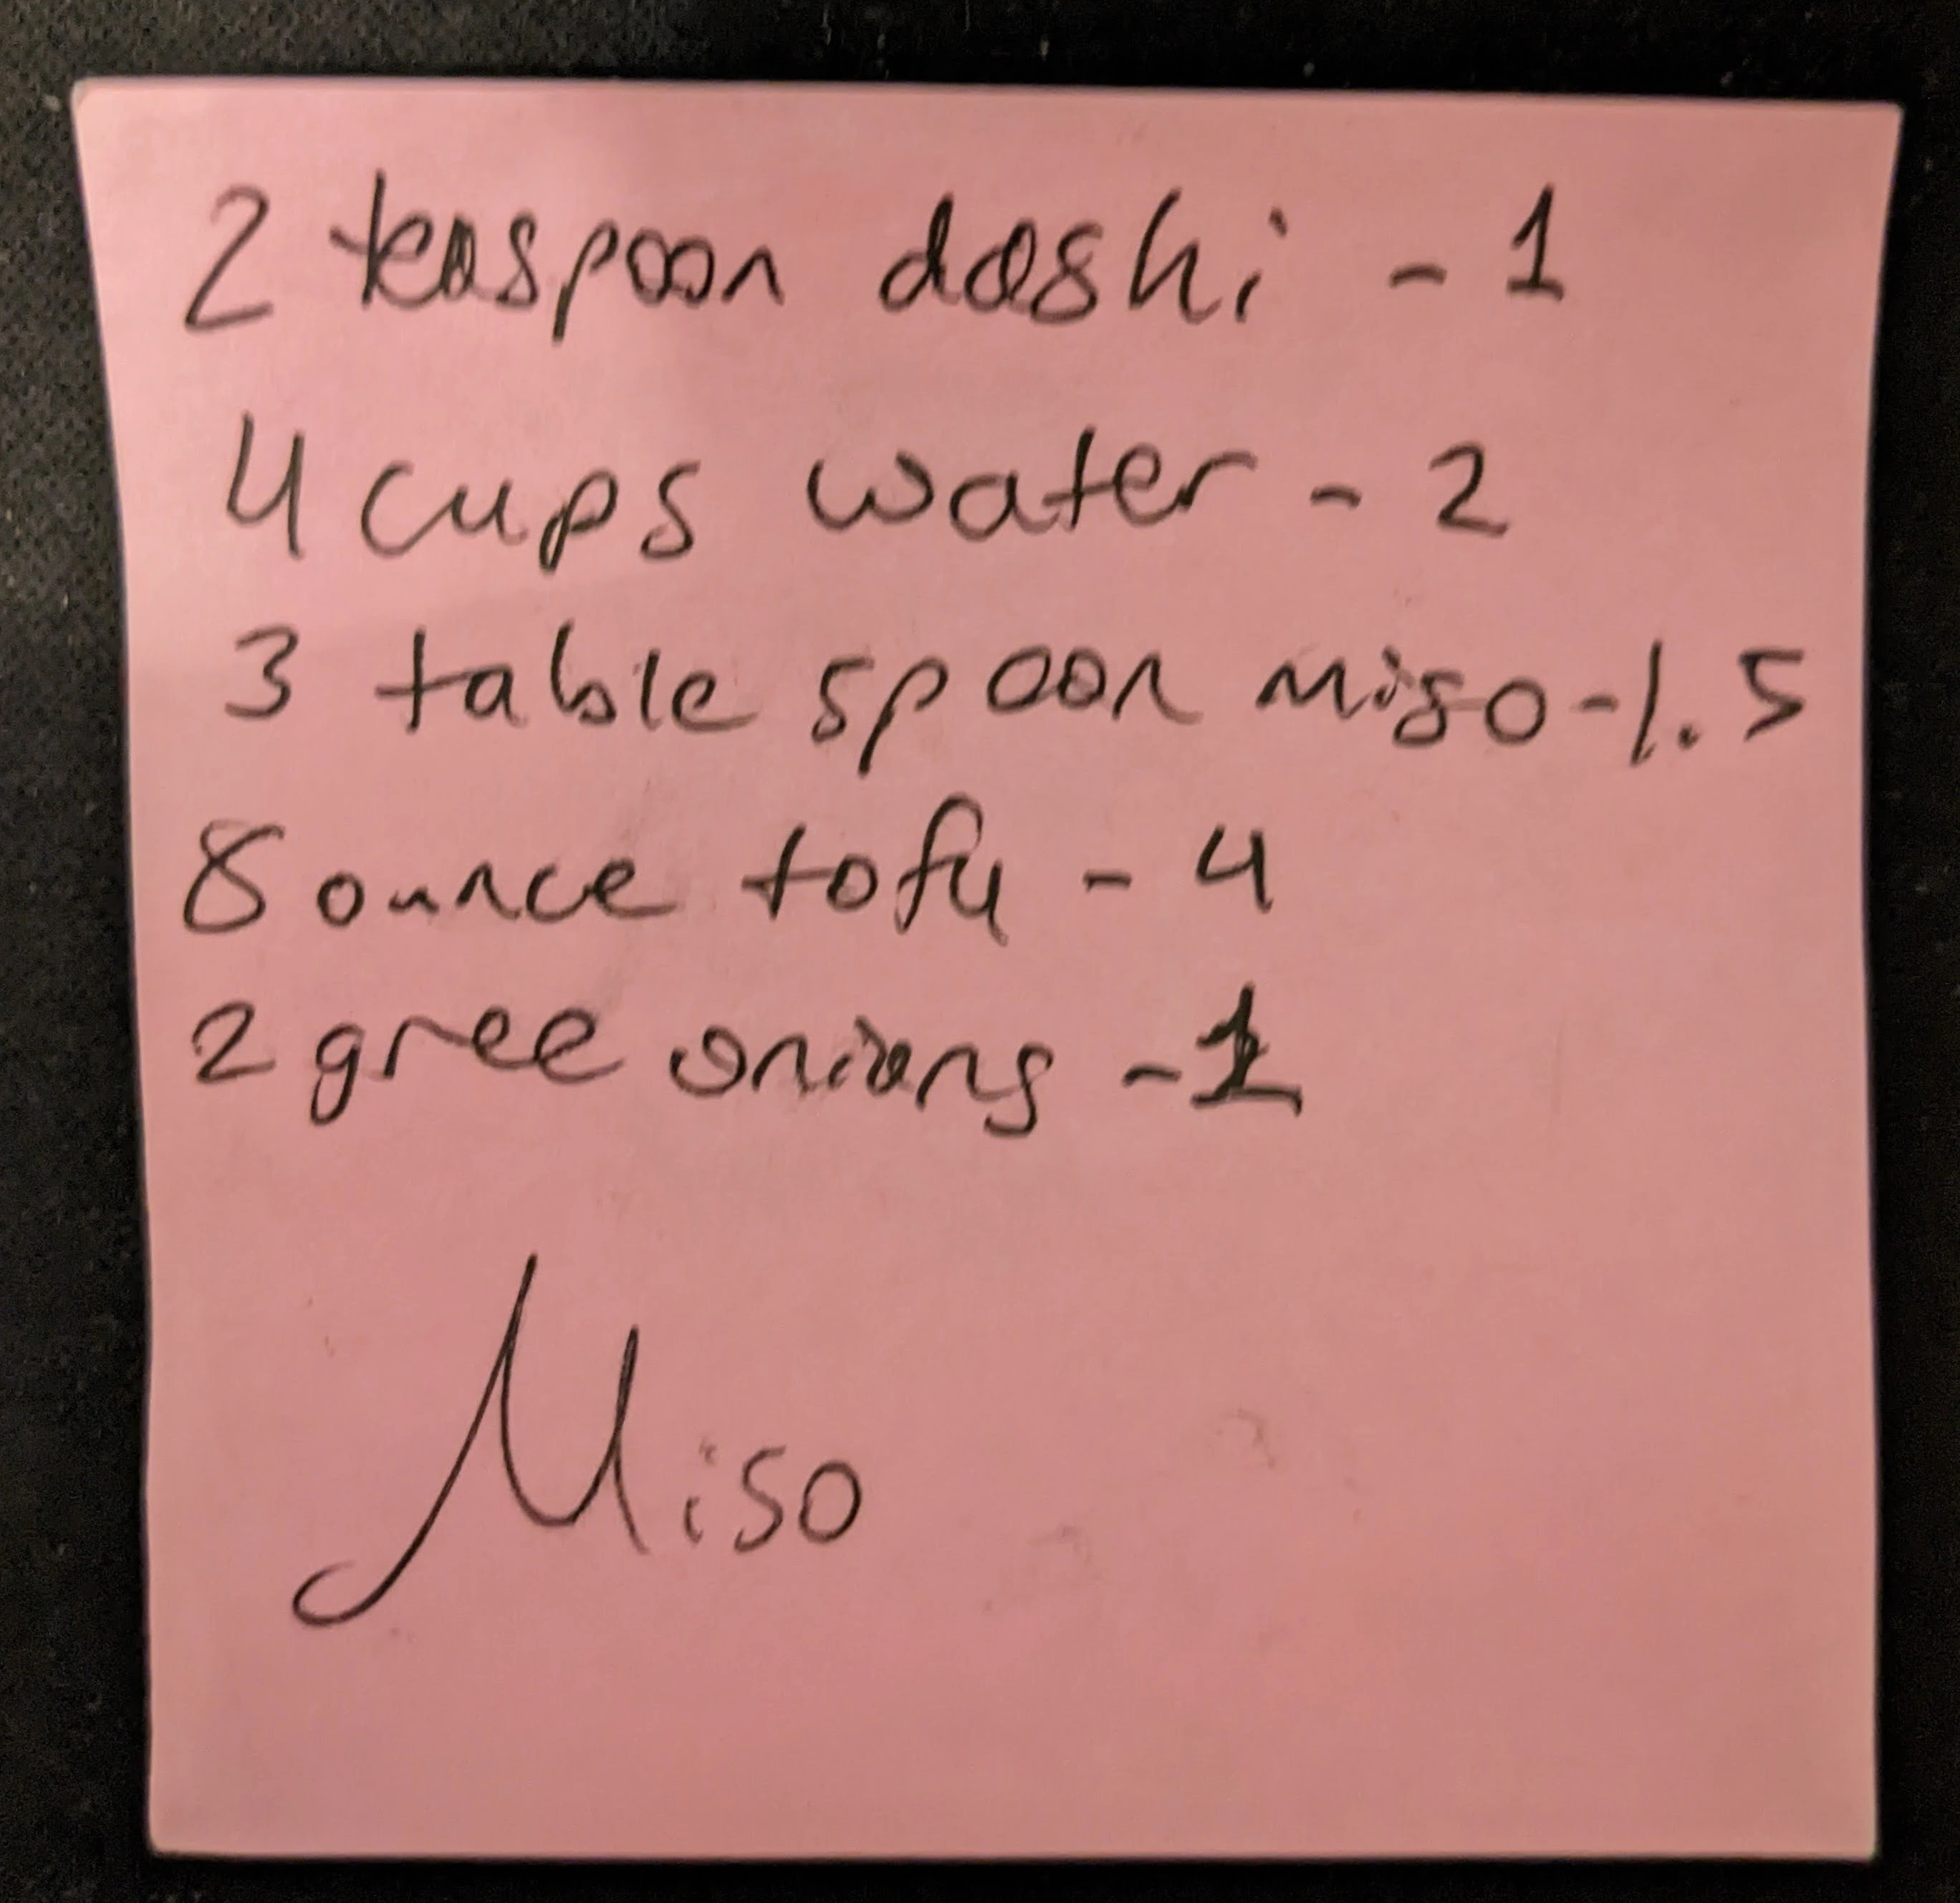 2 teaspoon dashi - 1
4 cups water - 2
3 table spoon miso - 1.5
8 ounce tofu - 4
2 gree onions - 1
Miso